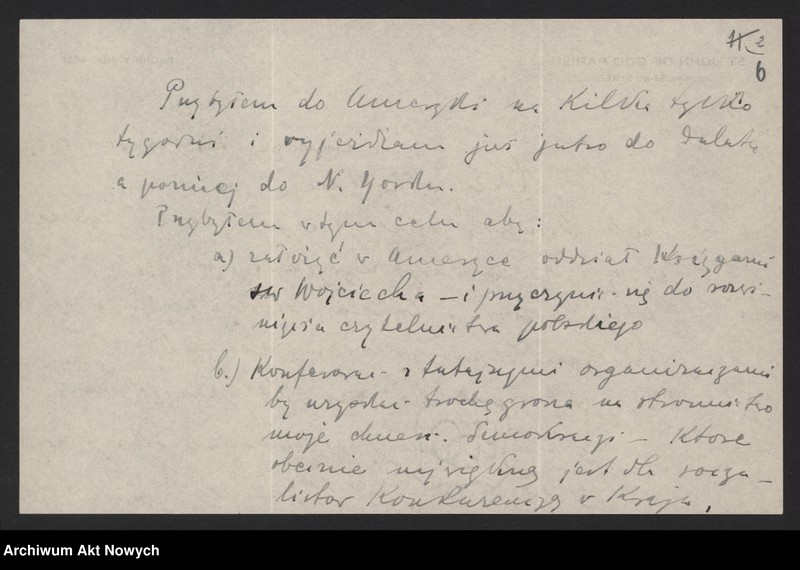 2
6
Przybyłem do Ameryki na kilka tylko
tygodni i wyjeżdżam już jutro do Duluth
a poniej do N. Yorku.
Przybyłem w tym celu aby:
a) założyć w Ameryce oddział Księgarni
św Wojciecha – i przyczynić się do rozwi-
nięcia czytelnictwa polskiego
b.) Konferować z tutejszymi organizacjami
by uzyskać trochę grosza na stronnictwo
moje chrześc. demokracji – które
obecnie największą jest dla socja-
listów konkurencją w Kraju.
Archiwum Akt Nowych